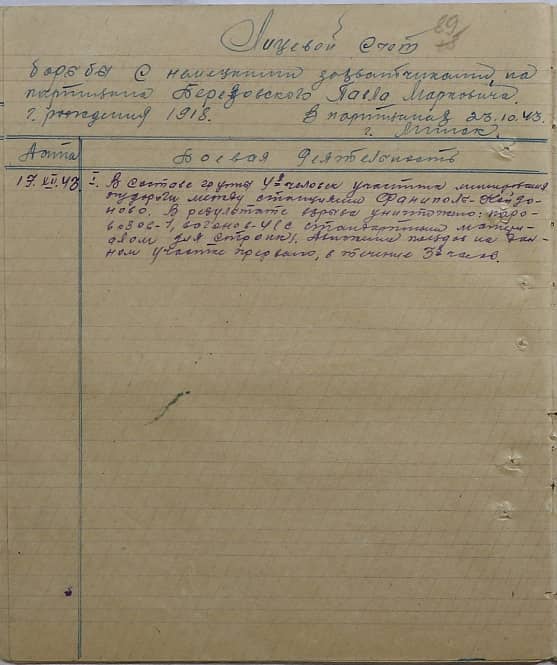 29
Лицевой счет
борьбы с немецкими захватчиками, на
партизана Березовского Павла Марковича.
г. рождения 1918. В партизанах 23.10.43.
г. Минск.
Дата Боевая деятельность
17.XII.43 1. В составе группы 4х человек участник минирования
ж/дороги между станциями Фаниполь-Койда-
ново. В результате взрыва уничтожено: паро-
возов-1, вагонов-4 (с стандартными матери-
алами для стройки). Движение поездов на дан-
ном участке прервано, в течение 3х часов.